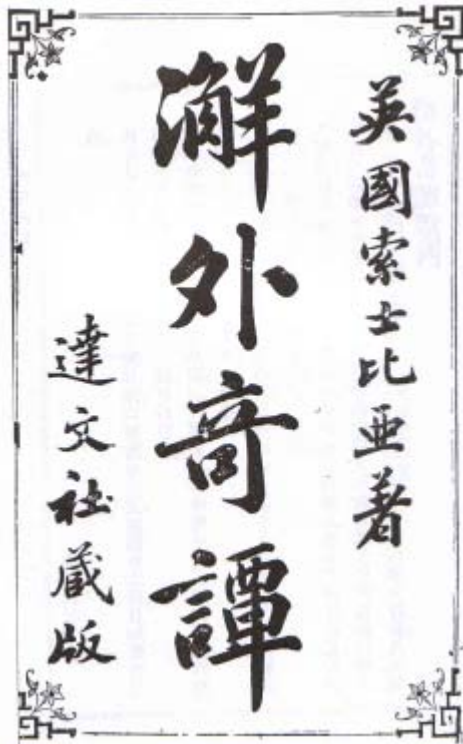 英國索士比亞著
澥外奇譚
達文社藏版